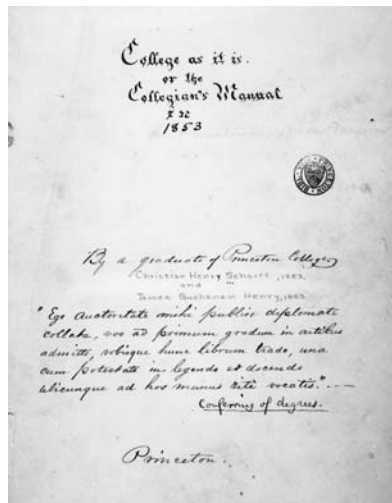 College as it is.
or the
Collegian's Manual
1853
By a graduate of Princeton College
Christian Henry Scharff, 1853
and
James Buchanan Henry, 1853
"Ego auctoritate mihi publico diplomate
collata, vos ad primum gradum in artibus
admitto, vobisque hunc librum trado, una
cum potestate in legendo et docendo
ubicunque ad hos munus rite vocatis." —
Conferring of degrees.
Princeton.